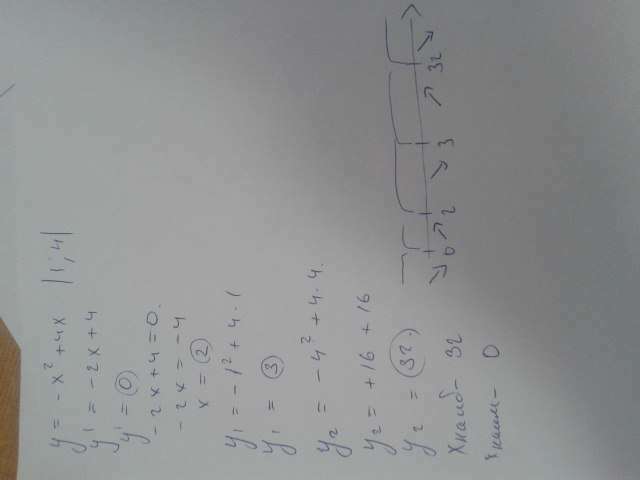 y = -x² + 4x |1; 4|
y' = -2x + 4
y' = 0
-2x + 4 = 0.
-2x = -4
x = 2
y₁ = -1² + 4 · 1
y₁ = 3
y₂ = -4² + 4 · 4.
y₂ = +16 + 16
y₂ = 32.
0 2 3 32
Xнаиб- 32
Xнаим- 0